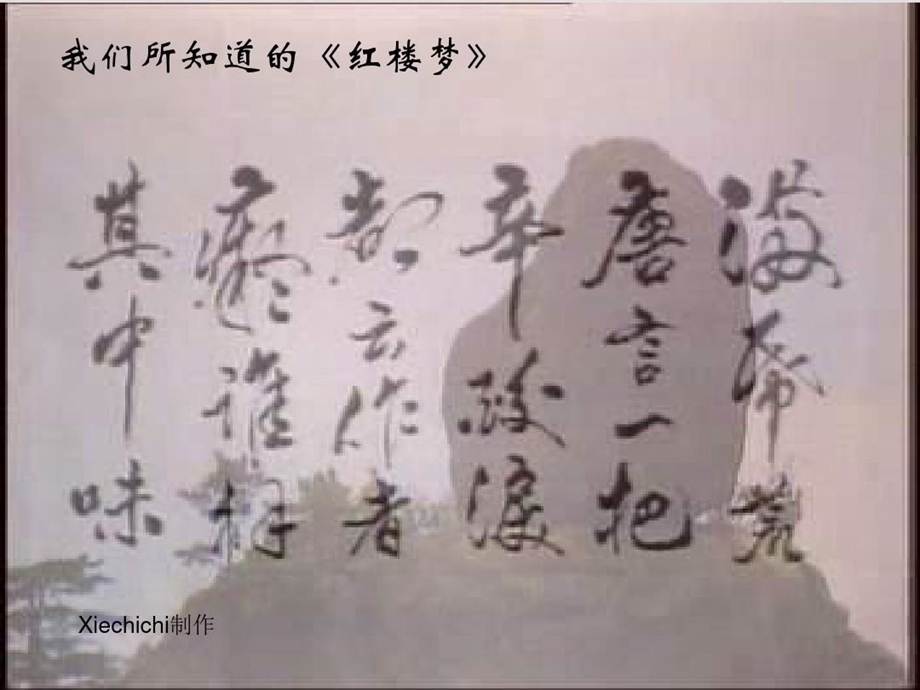 我们所知道的《红楼梦》
滿帋荒
唐言一把
辛酸淚
都云作者
癡誰解
其中味
Xiechichi制作